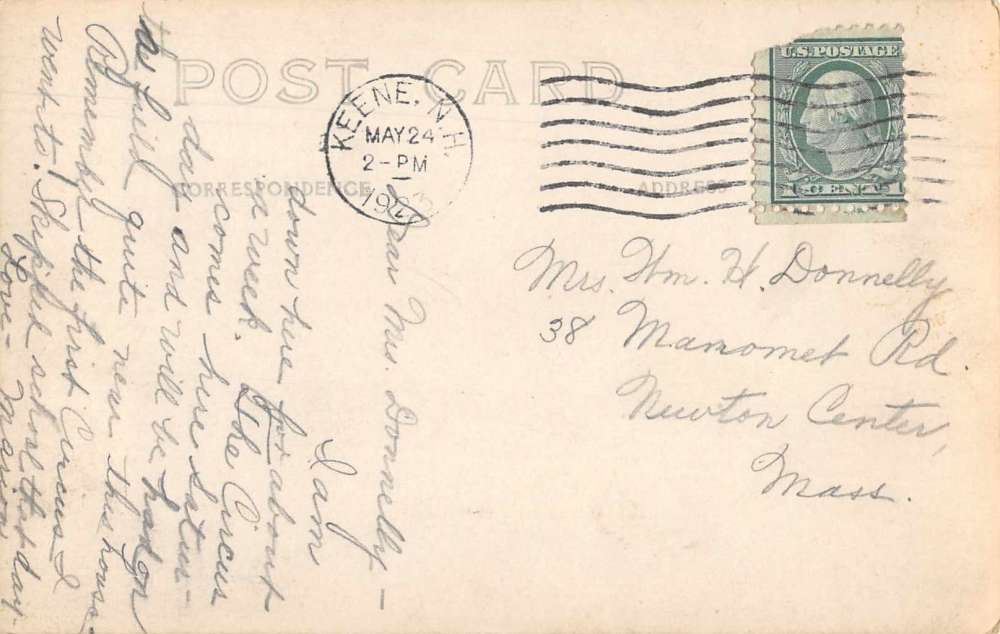 POST CARD
CORRESPONDENCE
ADDRESS
U.S. POSTAGE
KEENE, N.H.
MAY 24
2-PM
Mrs. Wm. H. Donnelly
38 Manomet Rd
Newton Center,
Mass.
Dear Mrs. Donnelly -
I am
down here for about
a week. The Circus
comes here Satur-
day and will be had on
a field quite near this house.
Remember the first Circus I
went to! Skipped school that day.
Love - Marion